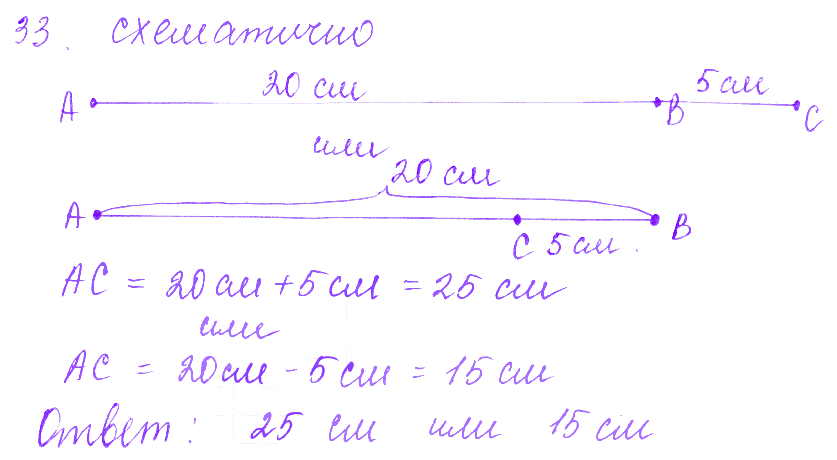 33. схематично
20 см 5 см
A B C
или
20 см
A B
C 5 см.
AC = 20 см + 5 см = 25 см
или
AC = 20 см - 5 см = 15 см
Ответ: 25 см или 15 см